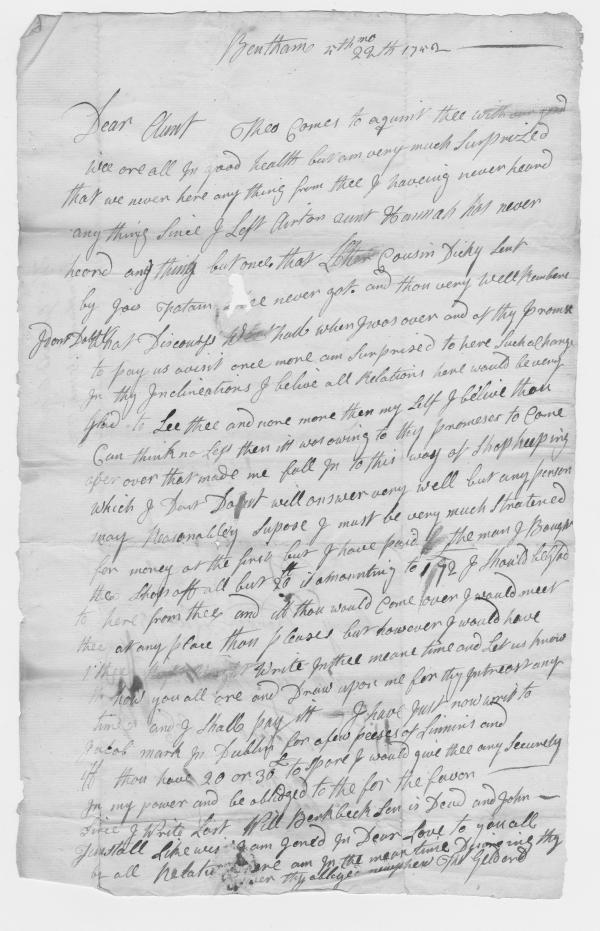 Bentham 5th mo 22th 1752
Dear Aunt Theo Comes to aquint thee with
wee are all In good health but am very much Surprized
that we never here any thing from thee I haveing never heard
any thing Since I Left Airton aunt Hannah has never
heard any thing but once that Letter Cousin Dicky Sent
by Jos never got and thou very well Rembers
I dont Dobt What Discourss halls when I was over and of thy Promise
to pay us avisit once more am Surprised to here Such a Change
In thy Inclineations I belive all Relations here would be very
glad to See thee and none more then my Self I belive thou
Can think no Less then itt was owing to thy promeser to Come
over that made me fall In to this way of Shopkeeping
which I Dout well answer very well but any person
may Reasonabley Supose I must be very much Straitened
for money at the first but I have paid the man I Baught
the Shop off all but 20 is amounting to 192 I Should be glad
to here from thee and if thou would Come over I would meet
thee at any place thou pleases but however I would have
thee Write In thee meane time and Let us know
how you all are and Draw upon me for thy Intreast any
time and I Shall pay itt I have Just now writ to
Jacob mark In Dublin for a few peeses of Linnins and
iff thou have 20 or 30£ to Spare I would give thee any Securety
In my power and be oblidged to the for the favor
Since I Write Last Will Benkbeck Son is Dead and John
Tunstall Likewis I am Joned In Dear Love to you all
by all Relations here am In the mean time Desireing thy
thy alleged newphew Tho Geldard